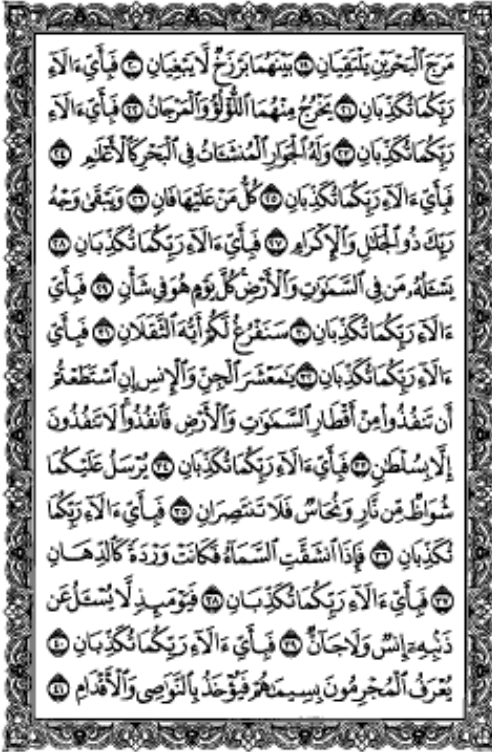 مَرَجَ ٱلْبَحْرَيْنِ يَلْتَقِيَانِ ١٩ بَيْنَهُمَا بَرْزَخٌ لَّا يَبْغِيَانِ ٢٠ فَبِأَيِّ ءَالَآءِ
رَبِّكُمَا تُكَذِّبَانِ ٢١ يَخْرُجُ مِنْهُمَا ٱللُّؤْلُؤُ وَٱلْمَرْجَانُ ٢٢ فَبِأَيِّ ءَالَآءِ
رَبِّكُمَا تُكَذِّبَانِ ٢٣ وَلَهُ ٱلْجَوَارِ ٱلْمُنشَـَٔاتُ فِى ٱلْبَحْرِ كَٱلْأَعْلَٰمِ ٢٤
فَبِأَيِّ ءَالَآءِ رَبِّكُمَا تُكَذِّبَانِ ٢٥ كُلُّ مَنْ عَلَيْهَا فَانٍ ٢٦ وَيَبْقَىٰ وَجْهُ
رَبِّكَ ذُو ٱلْجَلَٰلِ وَٱلْإِكْرَامِ ٢٧ فَبِأَيِّ ءَالَآءِ رَبِّكُمَا تُكَذِّبَانِ ٢٨
يَسْـَٔلُهُۥ مَن فِى ٱلسَّمَٰوَٰتِ وَٱلْأَرْضِ ۚ كُلَّ يَوْمٍ هُوَ فِى شَأْنٍ ٢٩ فَبِأَيِّ
ءَالَآءِ رَبِّكُمَا تُكَذِّبَانِ ٣٠ سَنَفْرُغُ لَكُمْ أَيُّهَ ٱلثَّقَلَانِ ٣١ فَبِأَيِّ
ءَالَآءِ رَبِّكُمَا تُكَذِّبَانِ ٣٢ يَٰمَعْشَرَ ٱلْجِنِّ وَٱلْإِنسِ إِنِ ٱسْتَطَعْتُمْ
أَن تَنفُذُوا۟ مِنْ أَقْطَارِ ٱلسَّمَٰوَٰتِ وَٱلْأَرْضِ فَٱنفُذُوا۟ ۚ لَا تَنفُذُونَ
إِلَّا بِسُلْطَٰنٍ ٣٣ فَبِأَيِّ ءَالَآءِ رَبِّكُمَا تُكَذِّبَانِ ٣٤ يُرْسَلُ عَلَيْكُمَا
شُوَاظٌ مِّن نَّارٍ وَنُحَاسٌ فَلَا تَنتَصِرَانِ ٣٥ فَبِأَيِّ ءَالَآءِ رَبِّكُمَا
تُكَذِّبَانِ ٣٦ فَإِذَا ٱنشَقَّتِ ٱلسَّمَآءُ فَكَانَتْ وَرْدَةً كَٱلدِّهَانِ
٣٧ فَبِأَيِّ ءَالَآءِ رَبِّكُمَا تُكَذِّبَانِ ٣٨ فَيَوْمَئِذٍ لَّا يُسْـَٔلُ عَن
ذَنۢبِهِۦٓ إِنسٌ وَلَا جَآنٌّ ٣٩ فَبِأَيِّ ءَالَآءِ رَبِّكُمَا تُكَذِّبَانِ ٤٠
يُعْرَفُ ٱلْمُجْرِمُونَ بِسِيمَٰهُمْ فَيُؤْخَذُ بِٱلنَّوَٰصِى وَٱلْأَقْدَامِ ٤١